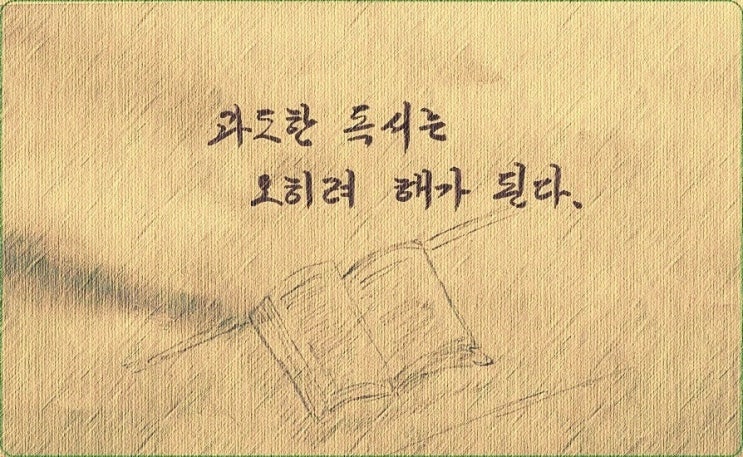 과도한 독서는
오히려 해가 된다.